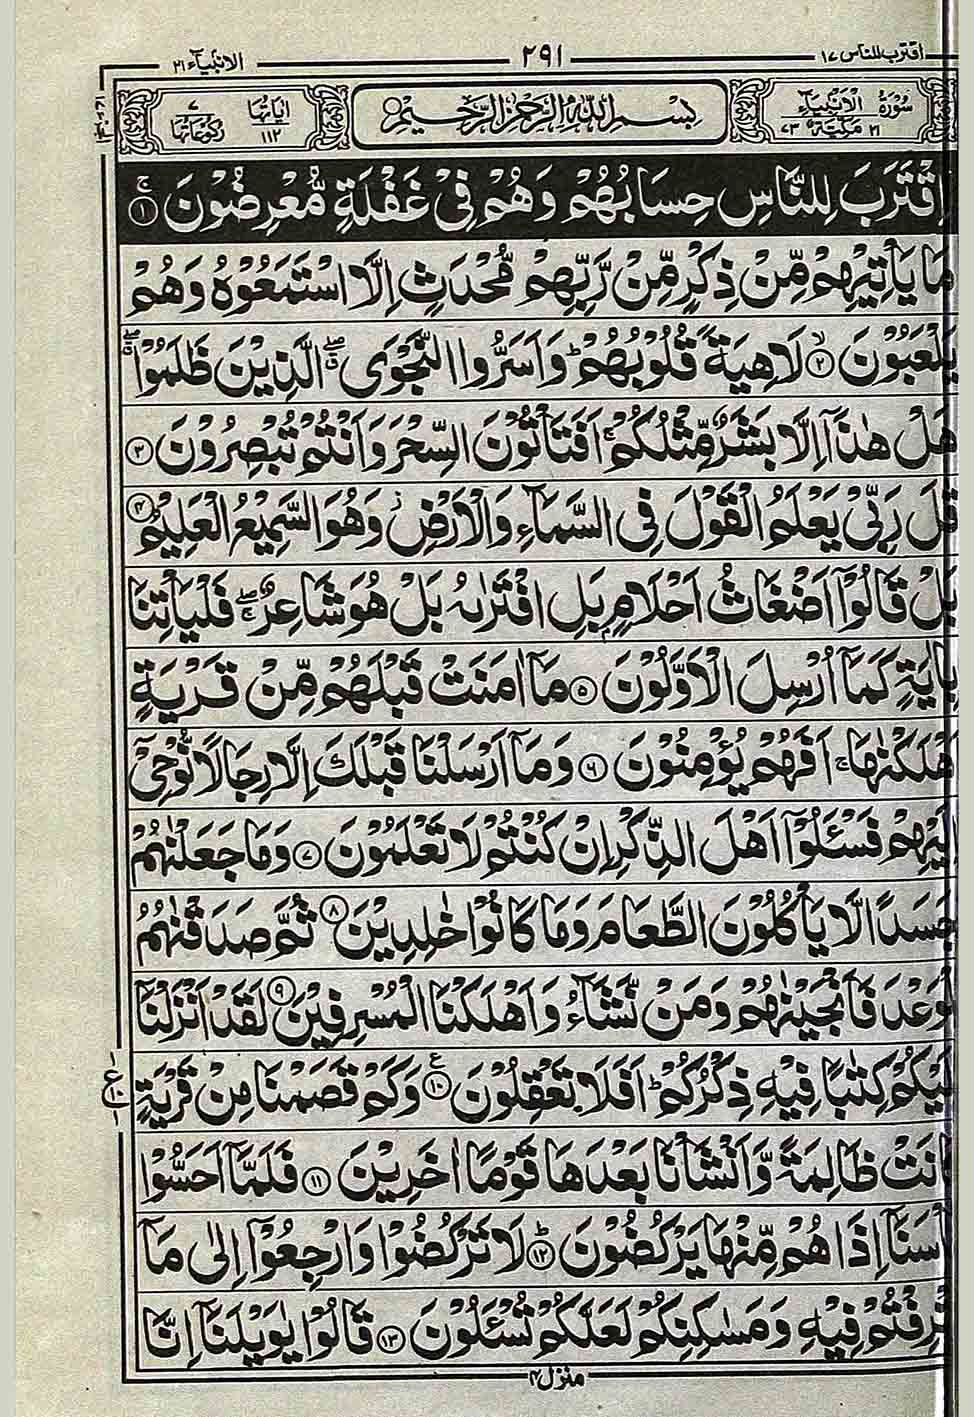 اقترب للناس ١٧ ٢٩١ الانبيآء ٢١
سُوْرَةُ الْاَنْبِيَآءِ مَكِّيَّةٌ ٢١ ٧٣ بِسْمِ اللّٰهِ الرَّحْمٰنِ الرَّحِيْمِ اٰيَاتُهَا ١١٢ رُكُوْعَاتُهَا ٧
اِقْتَرَبَ لِلنَّاسِ حِسَابُهُمْ وَهُمْ فِيْ غَفْلَةٍ مُّعْرِضُوْنَ ۚ‏ ١
مَا يَاْتِيْهِمْ مِّنْ ذِكْرٍ مِّنْ رَّبِّهِمْ مُّحْدَثٍ اِلَّا اسْتَمَعُوْهُ وَهُمْ
يَلْعَبُوْنَ ۙ‏ ٢ لَاهِيَةً قُلُوْبُهُمْ ؕ وَاَسَرُّوا النَّجْوَى ۖ الَّذِيْنَ ظَلَمُوْا ۖ
هَلْ هٰذَاۤ اِلَّا بَشَرٌ مِّثْلُكُمْ ۚ اَفَتَاْتُوْنَ السِّحْرَ وَاَنْتُمْ تُبْصِرُوْنَ ٣
قٰلَ رَبِّيْ يَعْلَمُ الْقَوْلَ فِي السَّمَآءِ وَالْاَرْضِ ؗ وَهُوَ السَّمِيْعُ الْعَلِيْمُ ٤
بَلْ قَالُوْۤا اَضْغَاثُ اَحْلَامٍۭ بَلِ افْتَرٰىهُ بَلْ هُوَ شَاعِرٌ ۖۚ فَلْيَاْتِنَا
بِاٰيَةٍ كَمَاۤ اُرْسِلَ الْاَوَّلُوْنَ ٥ مَاۤ اٰمَنَتْ قَبْلَهُمْ مِّنْ قَرْيَةٍ
اَهْلَكْنٰهَا ۚ اَفَهُمْ يُؤْمِنُوْنَ ٦ وَمَاۤ اَرْسَلْنَا قَبْلَكَ اِلَّا رِجَالًا نُّوْحِيْۤ
اِلَيْهِمْ فَسْـَٔلُوْۤا اَهْلَ الذِّكْرِ اِنْ كُنْتُمْ لَا تَعْلَمُوْنَ ٧ وَمَا جَعَلْنٰهُمْ
جَسَدًا لَّا يَاْكُلُوْنَ الطَّعَامَ وَمَا كَانُوْا خٰلِدِيْنَ ٨ ثُمَّ صَدَقْنٰهُمُ
الْوَعْدَ فَاَنْجَيْنٰهُمْ وَمَنْ نَّشَآءُ وَاَهْلَكْنَا الْمُسْرِفِيْنَ ٩ لَقَدْ اَنْزَلْنَاۤ
اِلَيْكُمْ كِتٰبًا فِيْهِ ذِكْرُكُمْ ؕ اَفَلَا تَعْقِلُوْنَ ١٠ وَكَمْ قَصَمْنَا مِنْ قَرْيَةٍ
كَانَتْ ظَالِمَةً وَّاَنْشَاْنَا بَعْدَهَا قَوْمًا اٰخَرِيْنَ ١١ فَلَمَّاۤ اَحَسُّوْا
بَاْسَنَاۤ اِذَا هُمْ مِّنْهَا يَرْكُضُوْنَ ؕ‏ ١٢ لَا تَرْكُضُوْا وَارْجِعُوْۤا اِلٰى مَاۤ
اُتْرِفْتُمْ فِيْهِ وَمَسٰكِنِكُمْ لَعَلَّكُمْ تُسْـَٔلُوْنَ ١٣ قَالُوْا يٰوَيْلَنَاۤ اِنَّا
منزل ٤